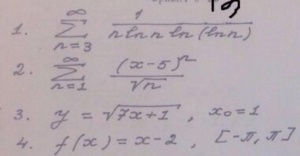 1. \sum_{n=3}^{\infty} \frac{1}{n \ln n \ln (\ln n)}
2. \sum_{n=1}^{\infty} \frac{(x-5)^n}{\sqrt{n}}
3. y = \sqrt{7x+1}, x_0 = 1
4. f(x) = x-2, [-π, π]